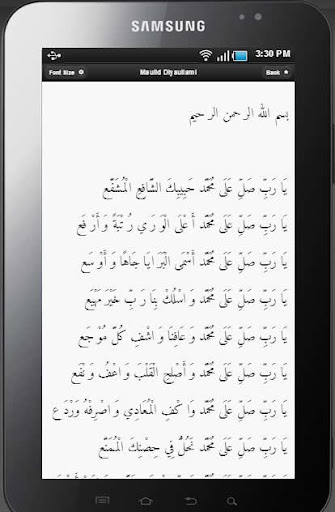 SAMSUNG
3:30 PM
Font Size
Maulid Diyaullami
Back
بسم الله الرحمن الرحيم
يَا رَبِّ صَلِّ عَلَى مُحَمَّدْ حَبِيبِكَ الشَّافِعِ الْمُشَفَّعْ
يَا رَبِّ صَلِّ عَلَى مُحَمَّدْ أَعْلَى الْوَرَي رُتْبَةً وَأَرْفَعْ
يَا رَبِّ صَلِّ عَلَى مُحَمَّدْ أَسْمَى الْبَرَايَا جَاهًا وَأَوْسَعْ
يَا رَبِّ صَلِّ عَلَى مُحَمَّدْ وَاسْلُكْ بِنَا رَبِّ خَيْرَ مَهْيَعْ
يَا رَبِّ صَلِّ عَلَى مُحَمَّدْ وَعَافِنَا وَاشْفِ كُلَّ مُوْجَعْ
يَا رَبِّ صَلِّ عَلَى مُحَمَّدْ وَأَصْلِحِ الْقَلْبَ وَاعْفُ وَنْفَعْ
يَا رَبِّ صَلِّ عَلَى مُحَمَّدْ وَاكْفِ الْمُعَادِي وَاصْرِفْهُ وَرْدَعْ
يَا رَبِّ صَلِّ عَلَى مُحَمَّدْ نَحُلُّ فِي حِصْنِكَ الْمُمَنَّعْ